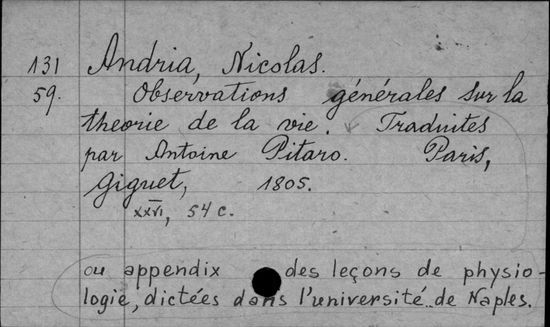 131 Andria, Nicolas.
59. Observations générales sur la
theorie de la vie. Traduites
par Antoine Pitaro. Paris,
Giguet, 1805.
XXVI, 54 c.
ou appendix des leçons de physio-
logie, dictées dans l'université de Naples.